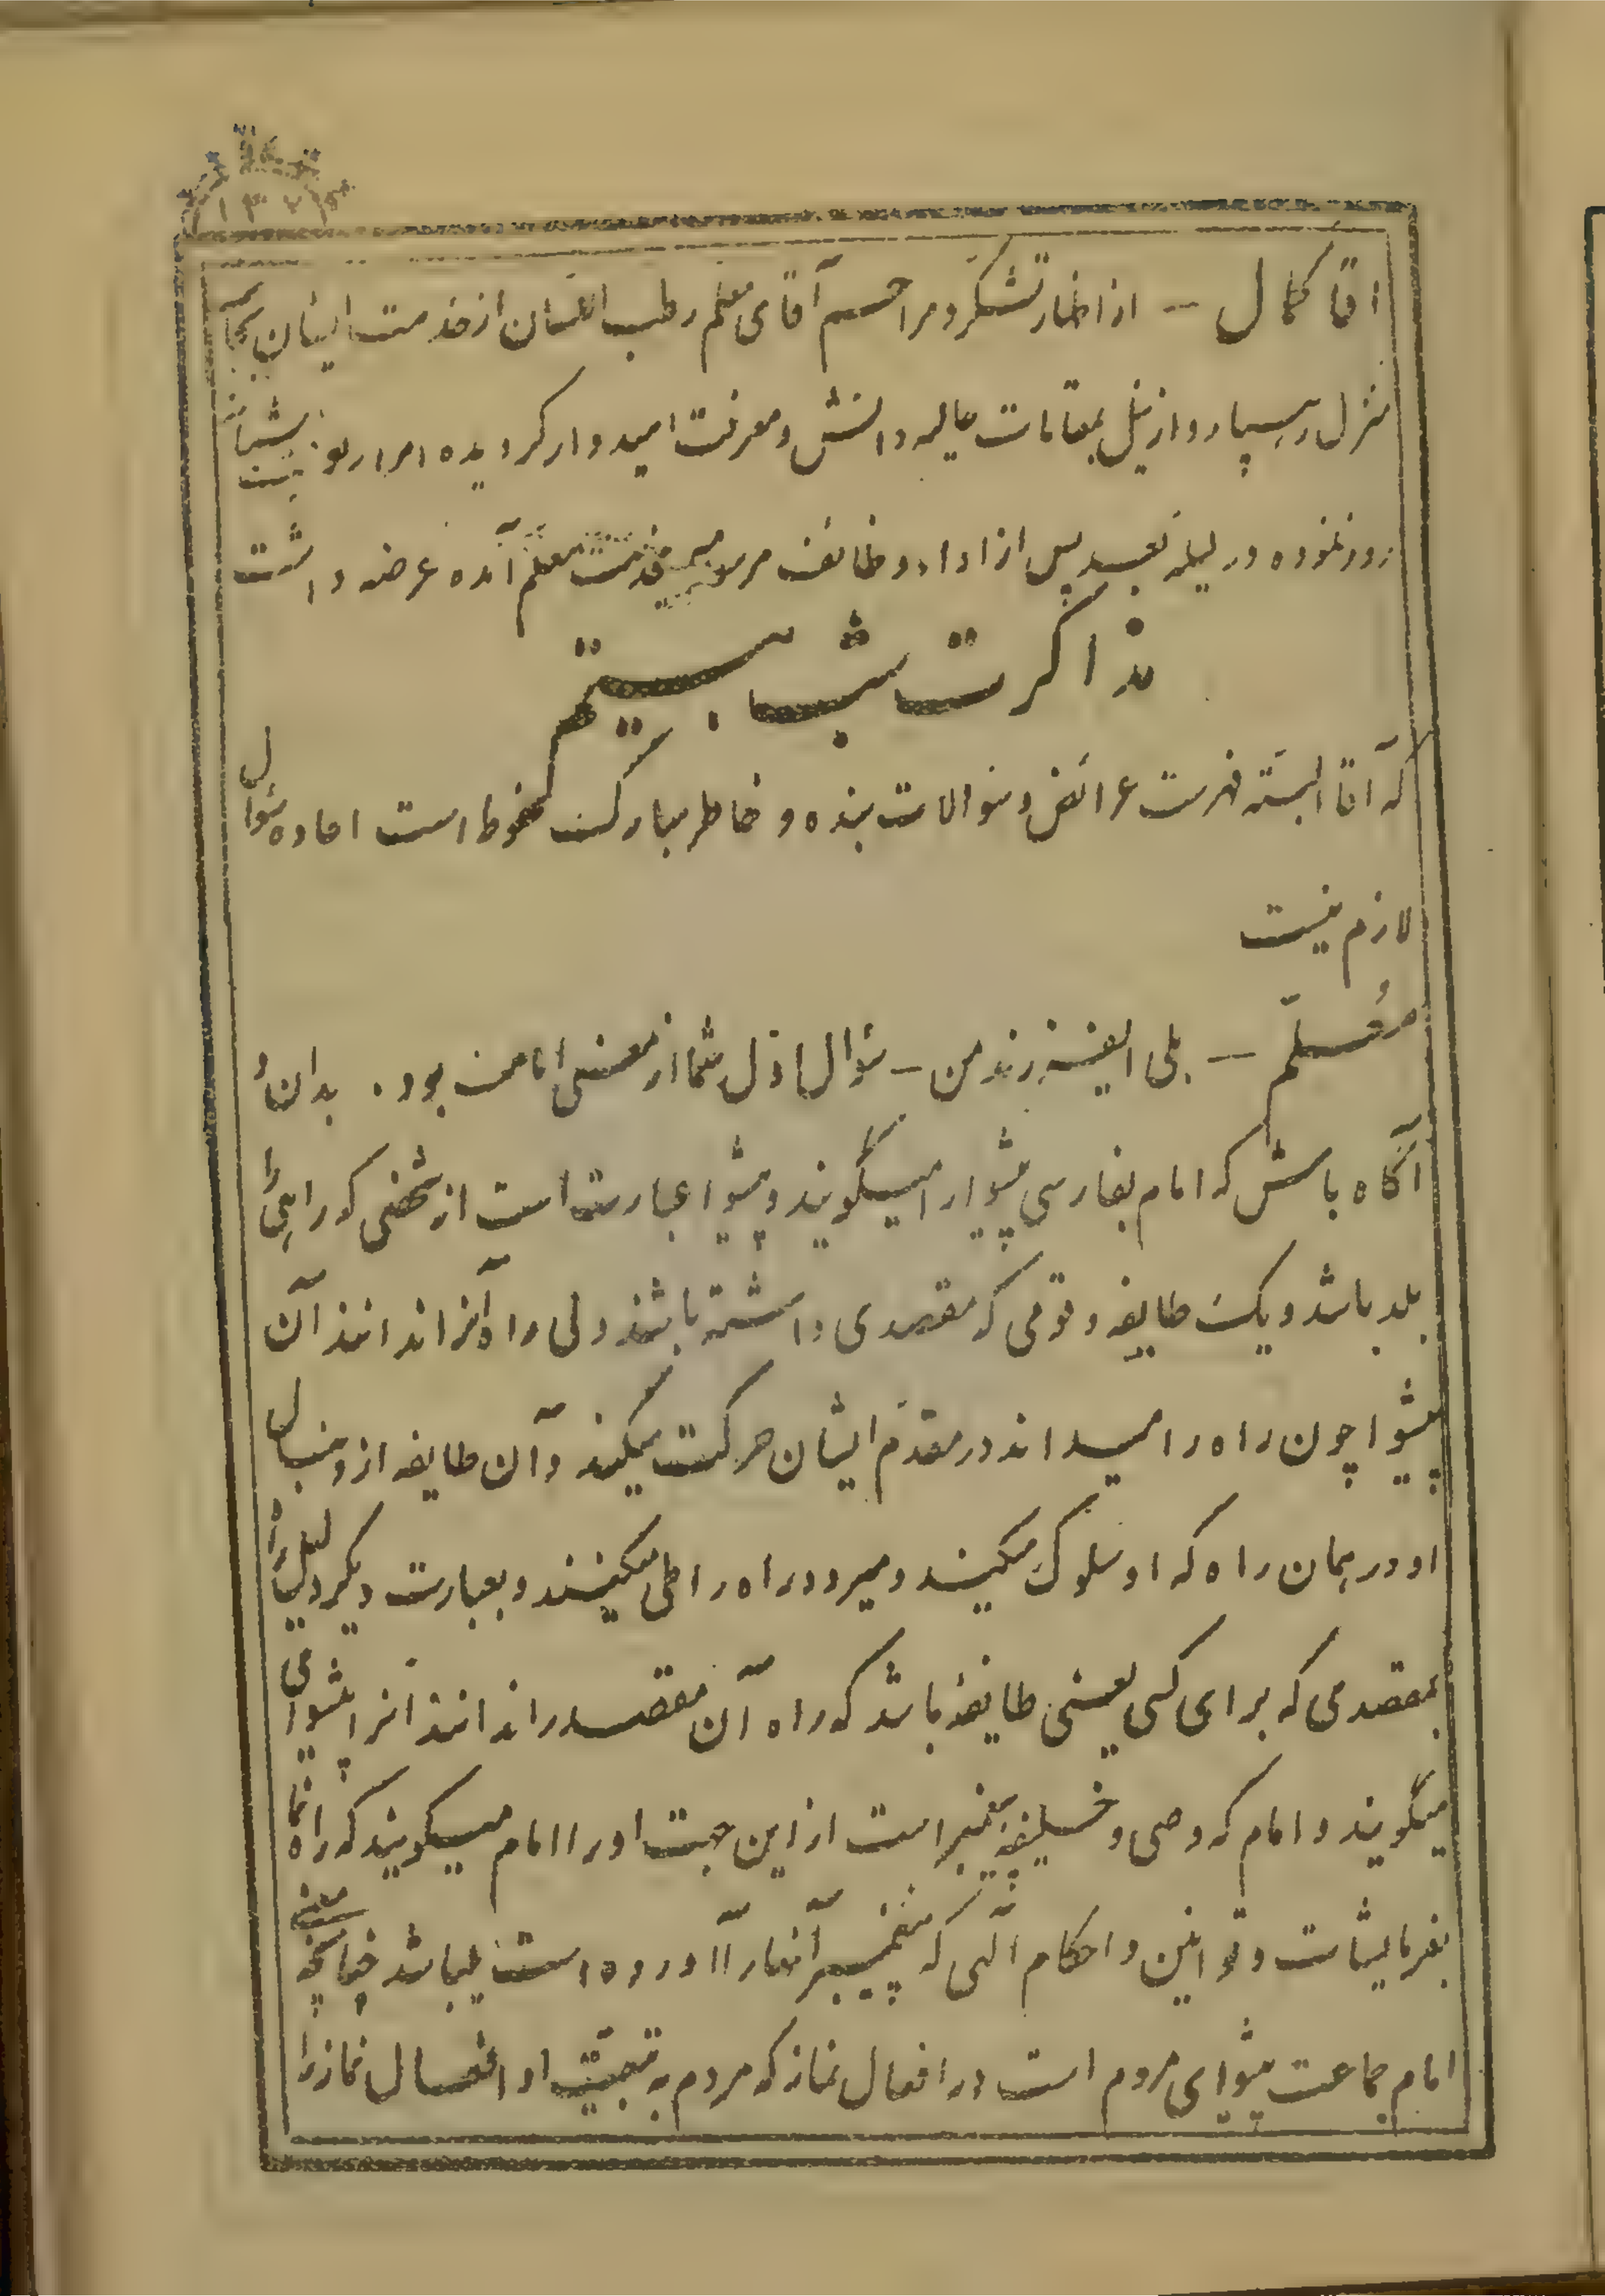 آقا کمال — از اظهار تشکر و مراحم آقای معلم رطب اللسان از خدمت ایشان بجانب
منزل رهسپار و از نیل بمقامات عالیه دانش و معرفت امیدوار گردیده امرار یومیه
روز نموده در لیله بعد پس از اداء وظائف مرسومه خدمت معلم آمده عرضه داشت
مذاکرت شب بیستم
که آقا البته فهرست عرائض و سؤالات بنده در خاطر مبارکت محفوظ است اعاده سؤال
لازم نیست
معلّم — بلی ایفرزند من – سؤال اوّل شما از معنی امامت بود. بدان و
آگاه باش که امام بفارسی پیشوا را میگویند و پیشوا عبارت است از شخصی که راهی را
بلد باشد و یک طایفه و قومی که مقصدی داشته باشند ولی راه آنرا ندانند آن
پیشوا چون راه را میداند در مقدّم ایشان حرکت میکند و آن طایفه از دنبال
او در همان راه که او سلوک میکند و میرود راه را طی میکنند و بعبارت دیگر دلیل راه
بمقصدی که برای کسی یعنی طایفهٔ باشد که راه آن مقصد را ندانند آنرا پیشوا می
میگویند و امام که وصی و خلیفه پیغمبر است از این جهت او را امام میگویند که راه نما
بفرمایشات و قوانین و احکام الهی که پیغمبر آنها را آورده است میباشد چنانچه معنی
امام جماعت پیشوای مردم است در افعال نماز که مردم به تبعیّت او افعال نماز را